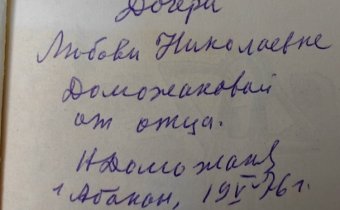 Дочери
Любови Николаевне
Доможаковой
от отца.
НДоможаков
г Абакан, 19 V 76 г.